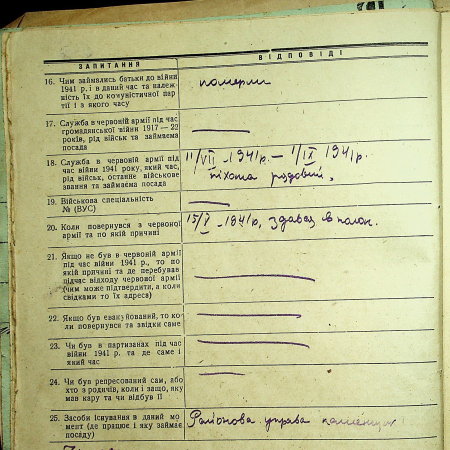 ЗАПИТАННЯ
ВІДПОВІДІ
16. Чим займались батьки до війни
1941 р. і в даний час та належ-
ність їх до комуністичної пар
тії і з якого часу
померли
17. Служба в червоній армії під час
громадянської війни 1917—22
років, рід військ та займаєма
посада
18. Служба в червоній армії під
час війни 1941 року, який час,
рід військ, останнє військове
звання та займаєма посада
11/VII -1941р. — 1/IX 1941р.
піхота рядовий,
19. Військова спеціальність
№ (ВУС)
20. Коли повернувся з червоної
армії та по якій причині
15/X -1941р, здавсь в полон.
21. Якщо не був в червоній армії
під час війни 1941 р., то по
якій причині та де перебував
підчас відходу червоної армії
(чим може підтвердити, а коли
свідками то їх адреса)
22. Якщо був евакуйований, то ко-
ли повернувся та звідки саме
23. Чи був в партизанах під час
війни 1941 р. та де саме і
який час
24. Чи був репресований сам, або
хто з родичів, коли і защо, яку
мав кару та чи відбув її
25. Засоби існування в даний мо
мент (де працює і яку займає
посаду)
Районова управа